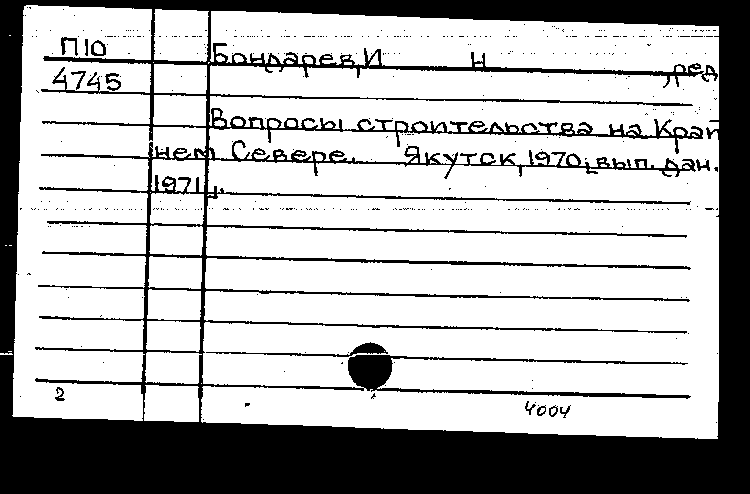 П10 Бондарев, И Н , ред
4745
Вопросы строительства на Край
нем Севере. Якутск, 1970; вып. дан.
1971г.
2 4004